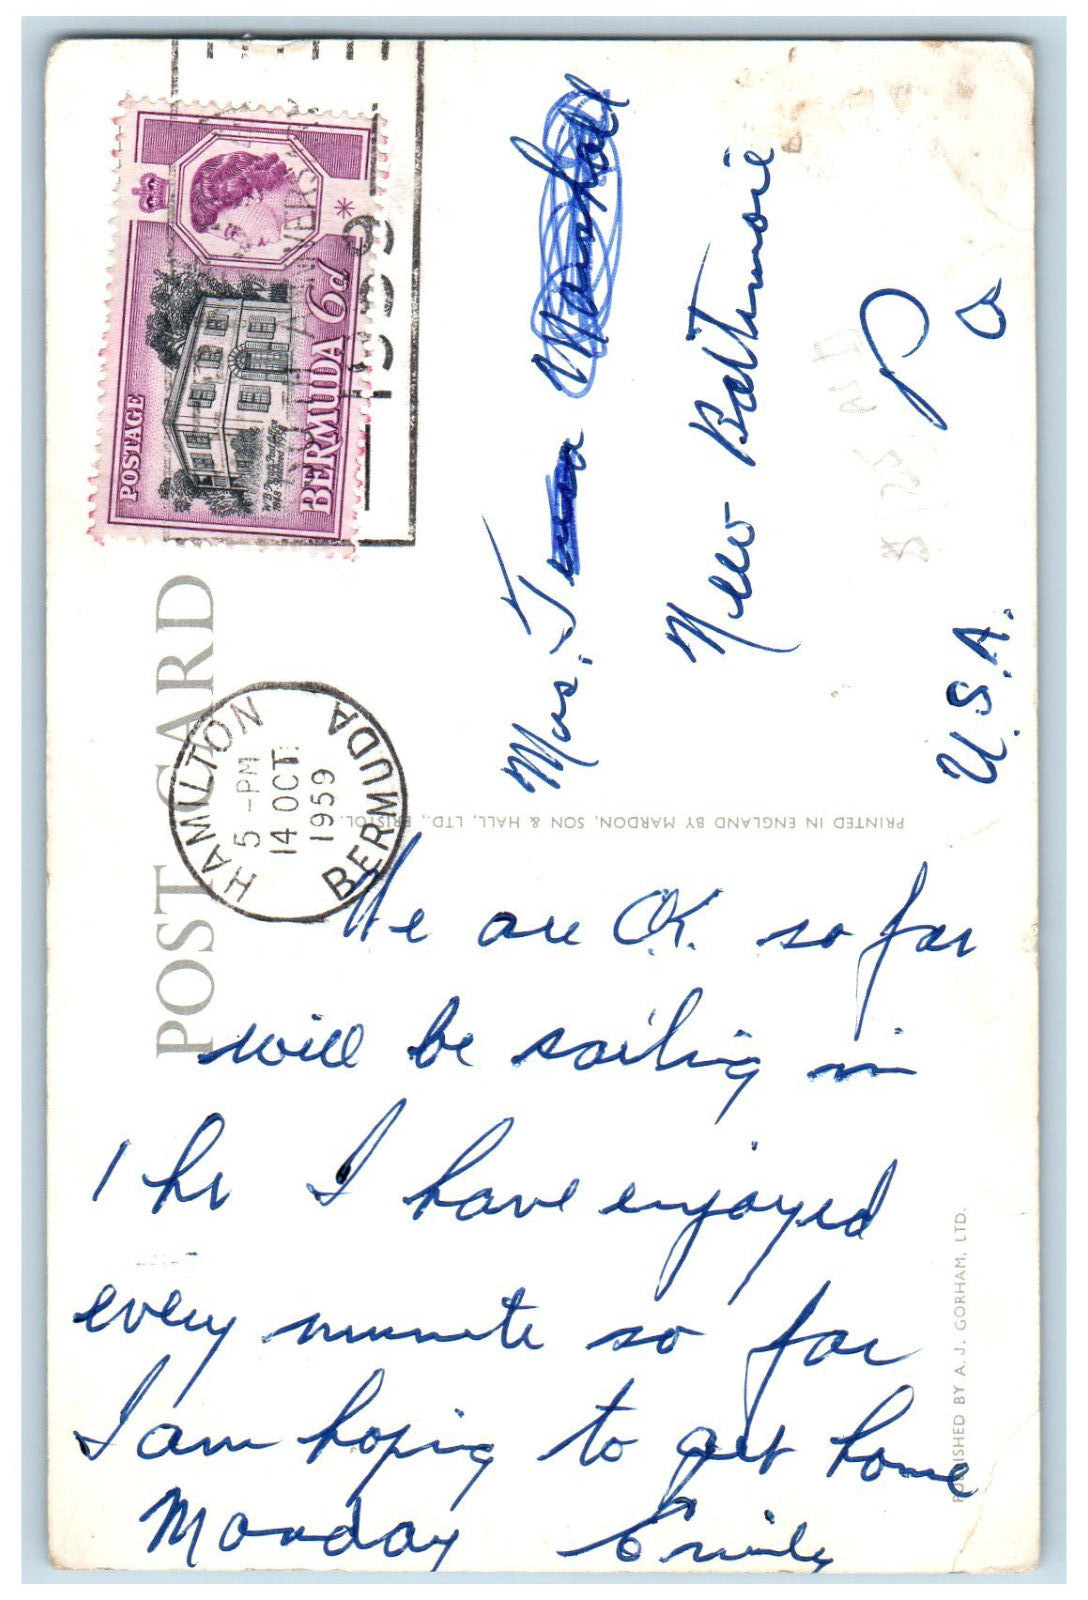 POST CARD
POSTAGE
BERMUDA 6d
W.B. Perot's Post Office
1848
1959
HAMILTON
5 - PM
14 OCT
1959
BERMUDA
Mrs.
Marshall
New Baltimore
Pa
U.S.A.
PRINTED IN ENGLAND BY MARDON, SON & HALL, LTD., BRISTOL.
We are O.K. so far
will be sailing in
1 hr I have enjoyed
every minute so far
I am hoping to get home
Monday Emily
PUBLISHED BY A. J. GORHAM, LTD.